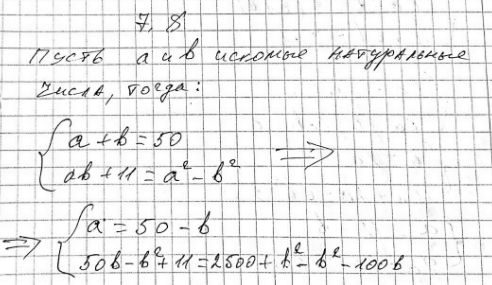 7.8
Пусть a и b искомые натуральные
числа, тогда:
{ a + b = 50
ab + 11 = a² - b² ⇒
⇒ { a = 50 - b
50b - b² + 11 = 2500 + b² - b² - 100b